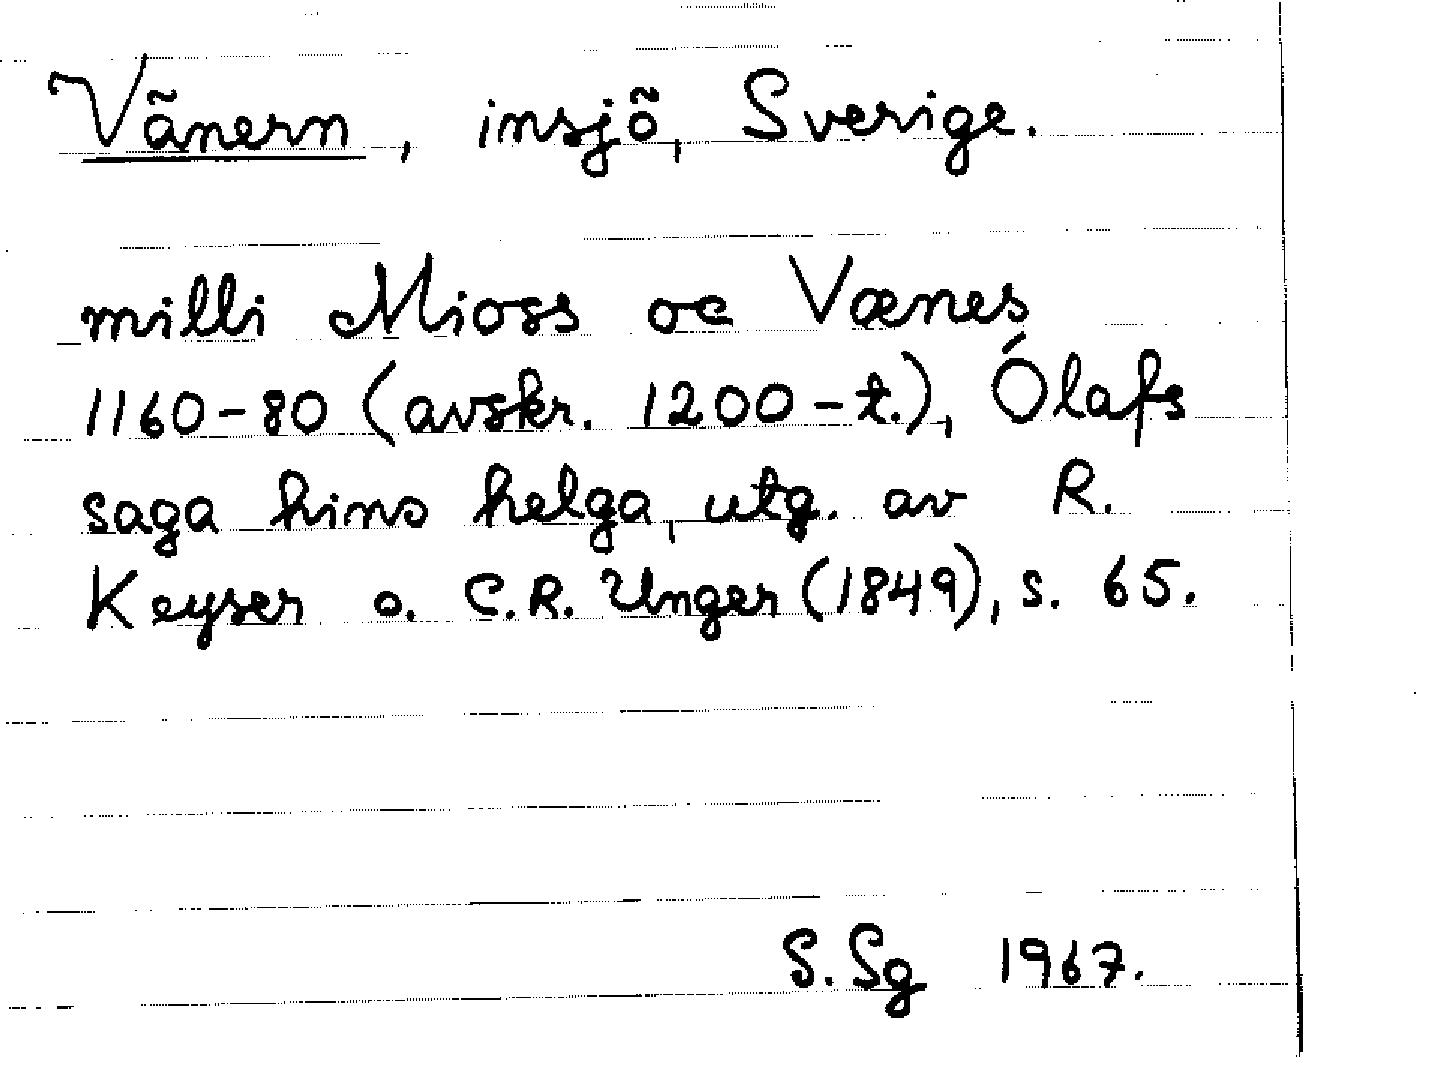 Vänern, insjö, Sverige.
milli Mioss oc Vænes
1160-80 (avskr. 1200-t.), Ólafs
saga hins helga, utg. av R.
Keyser o. C.R. Unger (1849), s. 65.
S. Sg 1967.